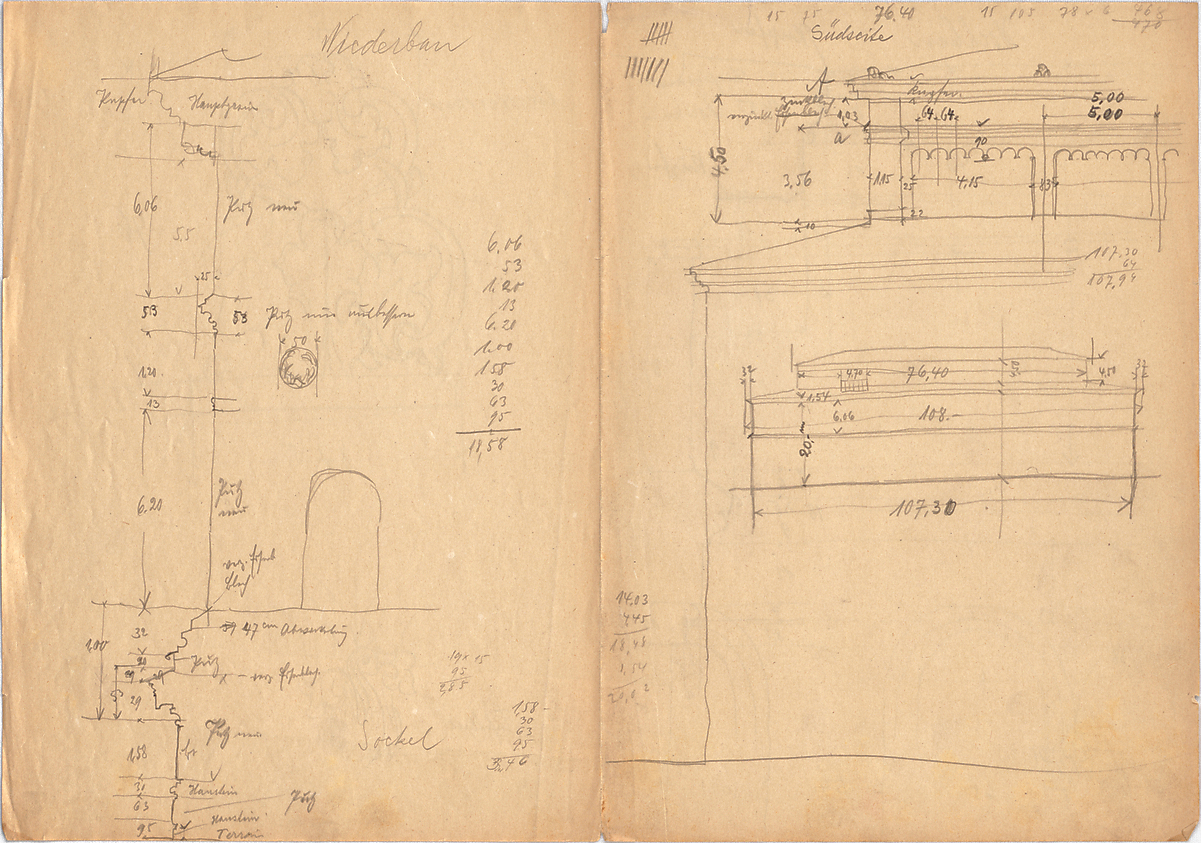 Niederbau
Kupfer
Hauptgesims
6,06
Putz neu
5.5
25
53
53
Putz neu ausbessern
50
1.20
13
6.20
Putz
neu
Blech
47 cm Abwicklung
1.00
32
20
Putz
29
29
Putz neu
1,58
30
Haustein
63
Putz
Haustein
95
Terrain
6.06
53
1.20
13
6.20
1.00
1.58
30
63
95
18,58
15
95
2,85
Sockel
1,58
30
63
95
3,46
15 15 76.40 15 105 78 x 6
Südseite
A
Kupfer
5,00
5,00
0,03
64 64
a
90
4,50
3,56
1,15
25
4,15
83
10
22
107,30
64
107,94
32
4,70
76,40
4,50
32
1,54
6,06
108.-
20,-m
107,30
14.03
4,45
18,48
1,54
20,02